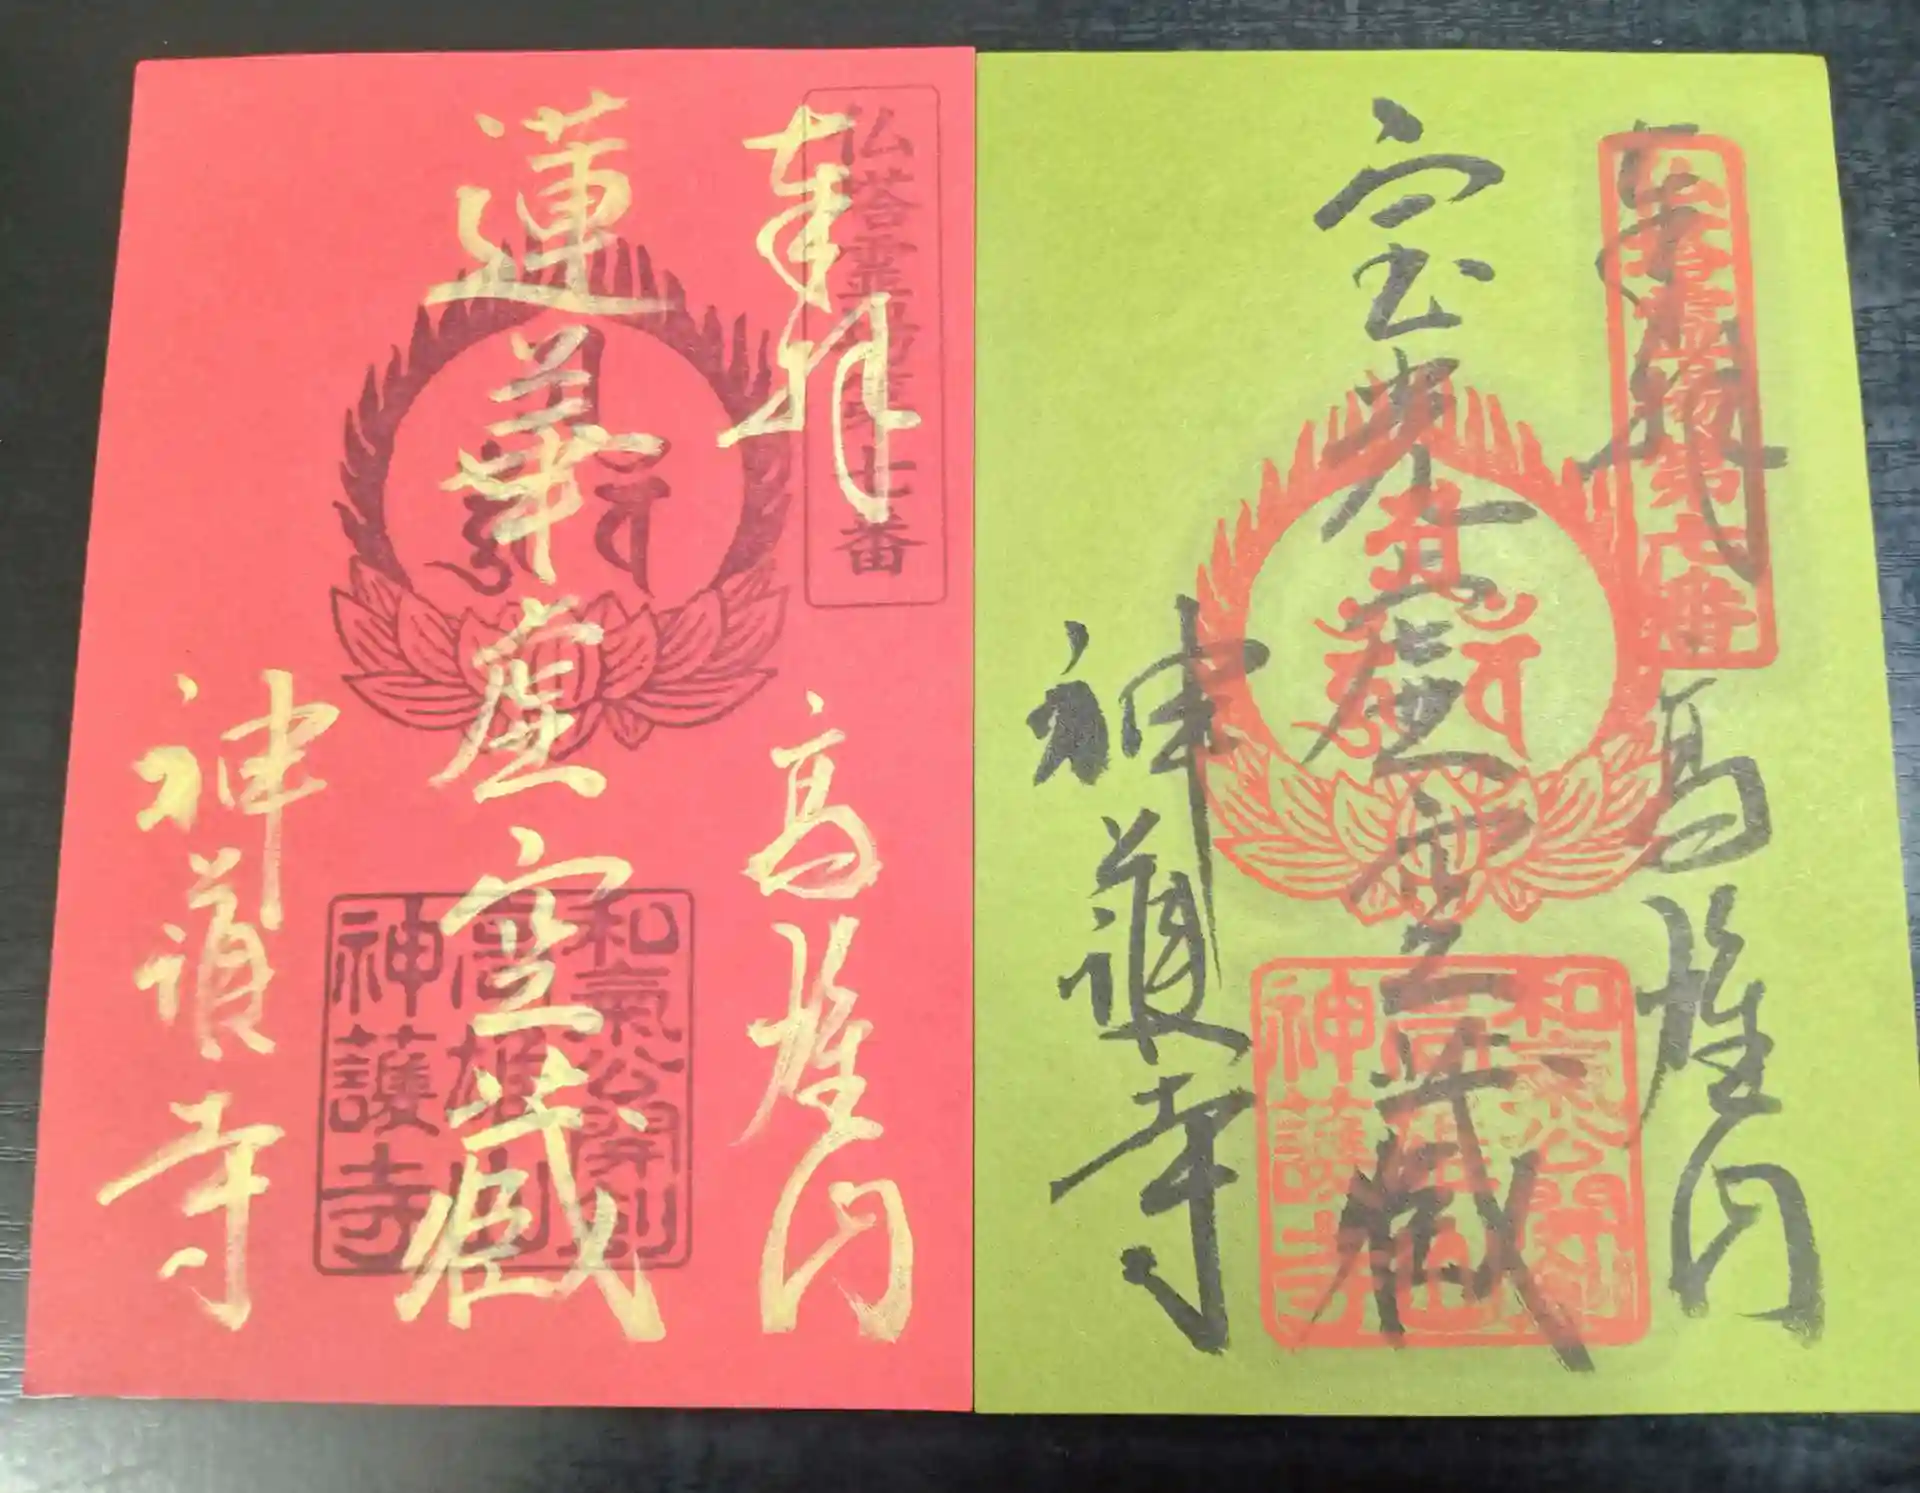 仏塔霊場第七番
奉拝
高雄山
蓮華虚空蔵
和氣公開創
高雄山
神護寺
神護寺
仏塔霊場第七番
奉拝
高雄山
宝光虚空蔵
和氣公開創
高雄山
神護寺
神護寺